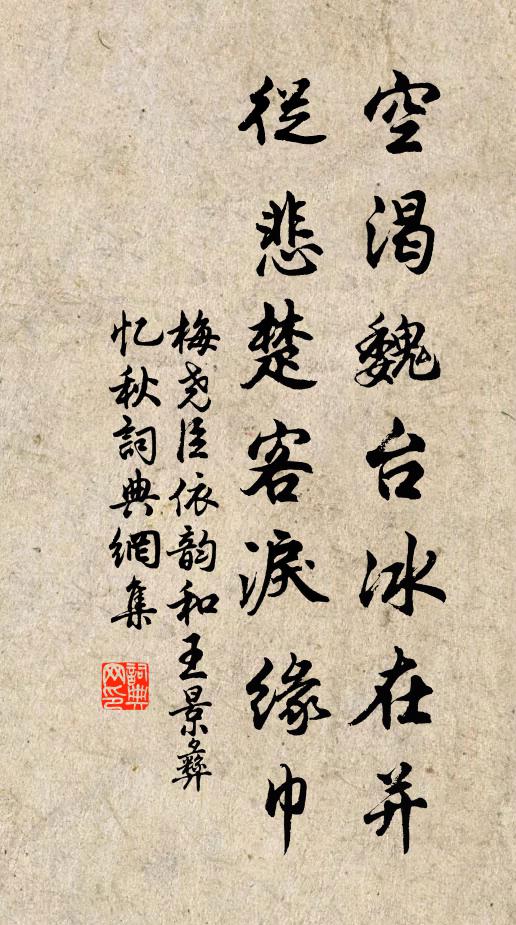 空渴魏台冰在井
從悲楚客淚緣巾
梅尧臣依韵和王景彝
忆秋詞典網集
詞典網印